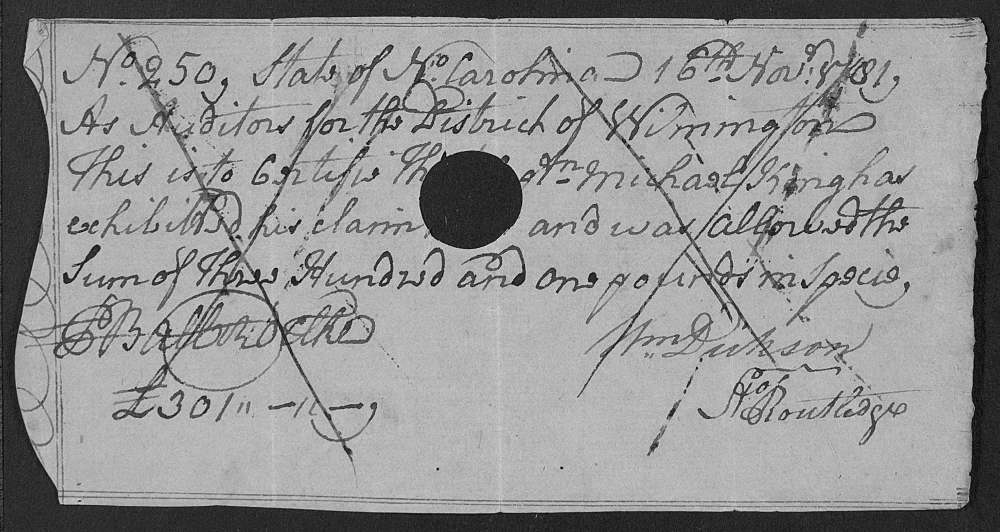 No. 250, State of No. Carolina 16th Novr. 1781,
As Auditors for the District of Wilmington
This is to Certifie Michael King has
exhibitted his claim and was allowed the
Sum of Three Hundred and one pounds in specie,
Wm Dickson
£301 " — " — ,
Routledge